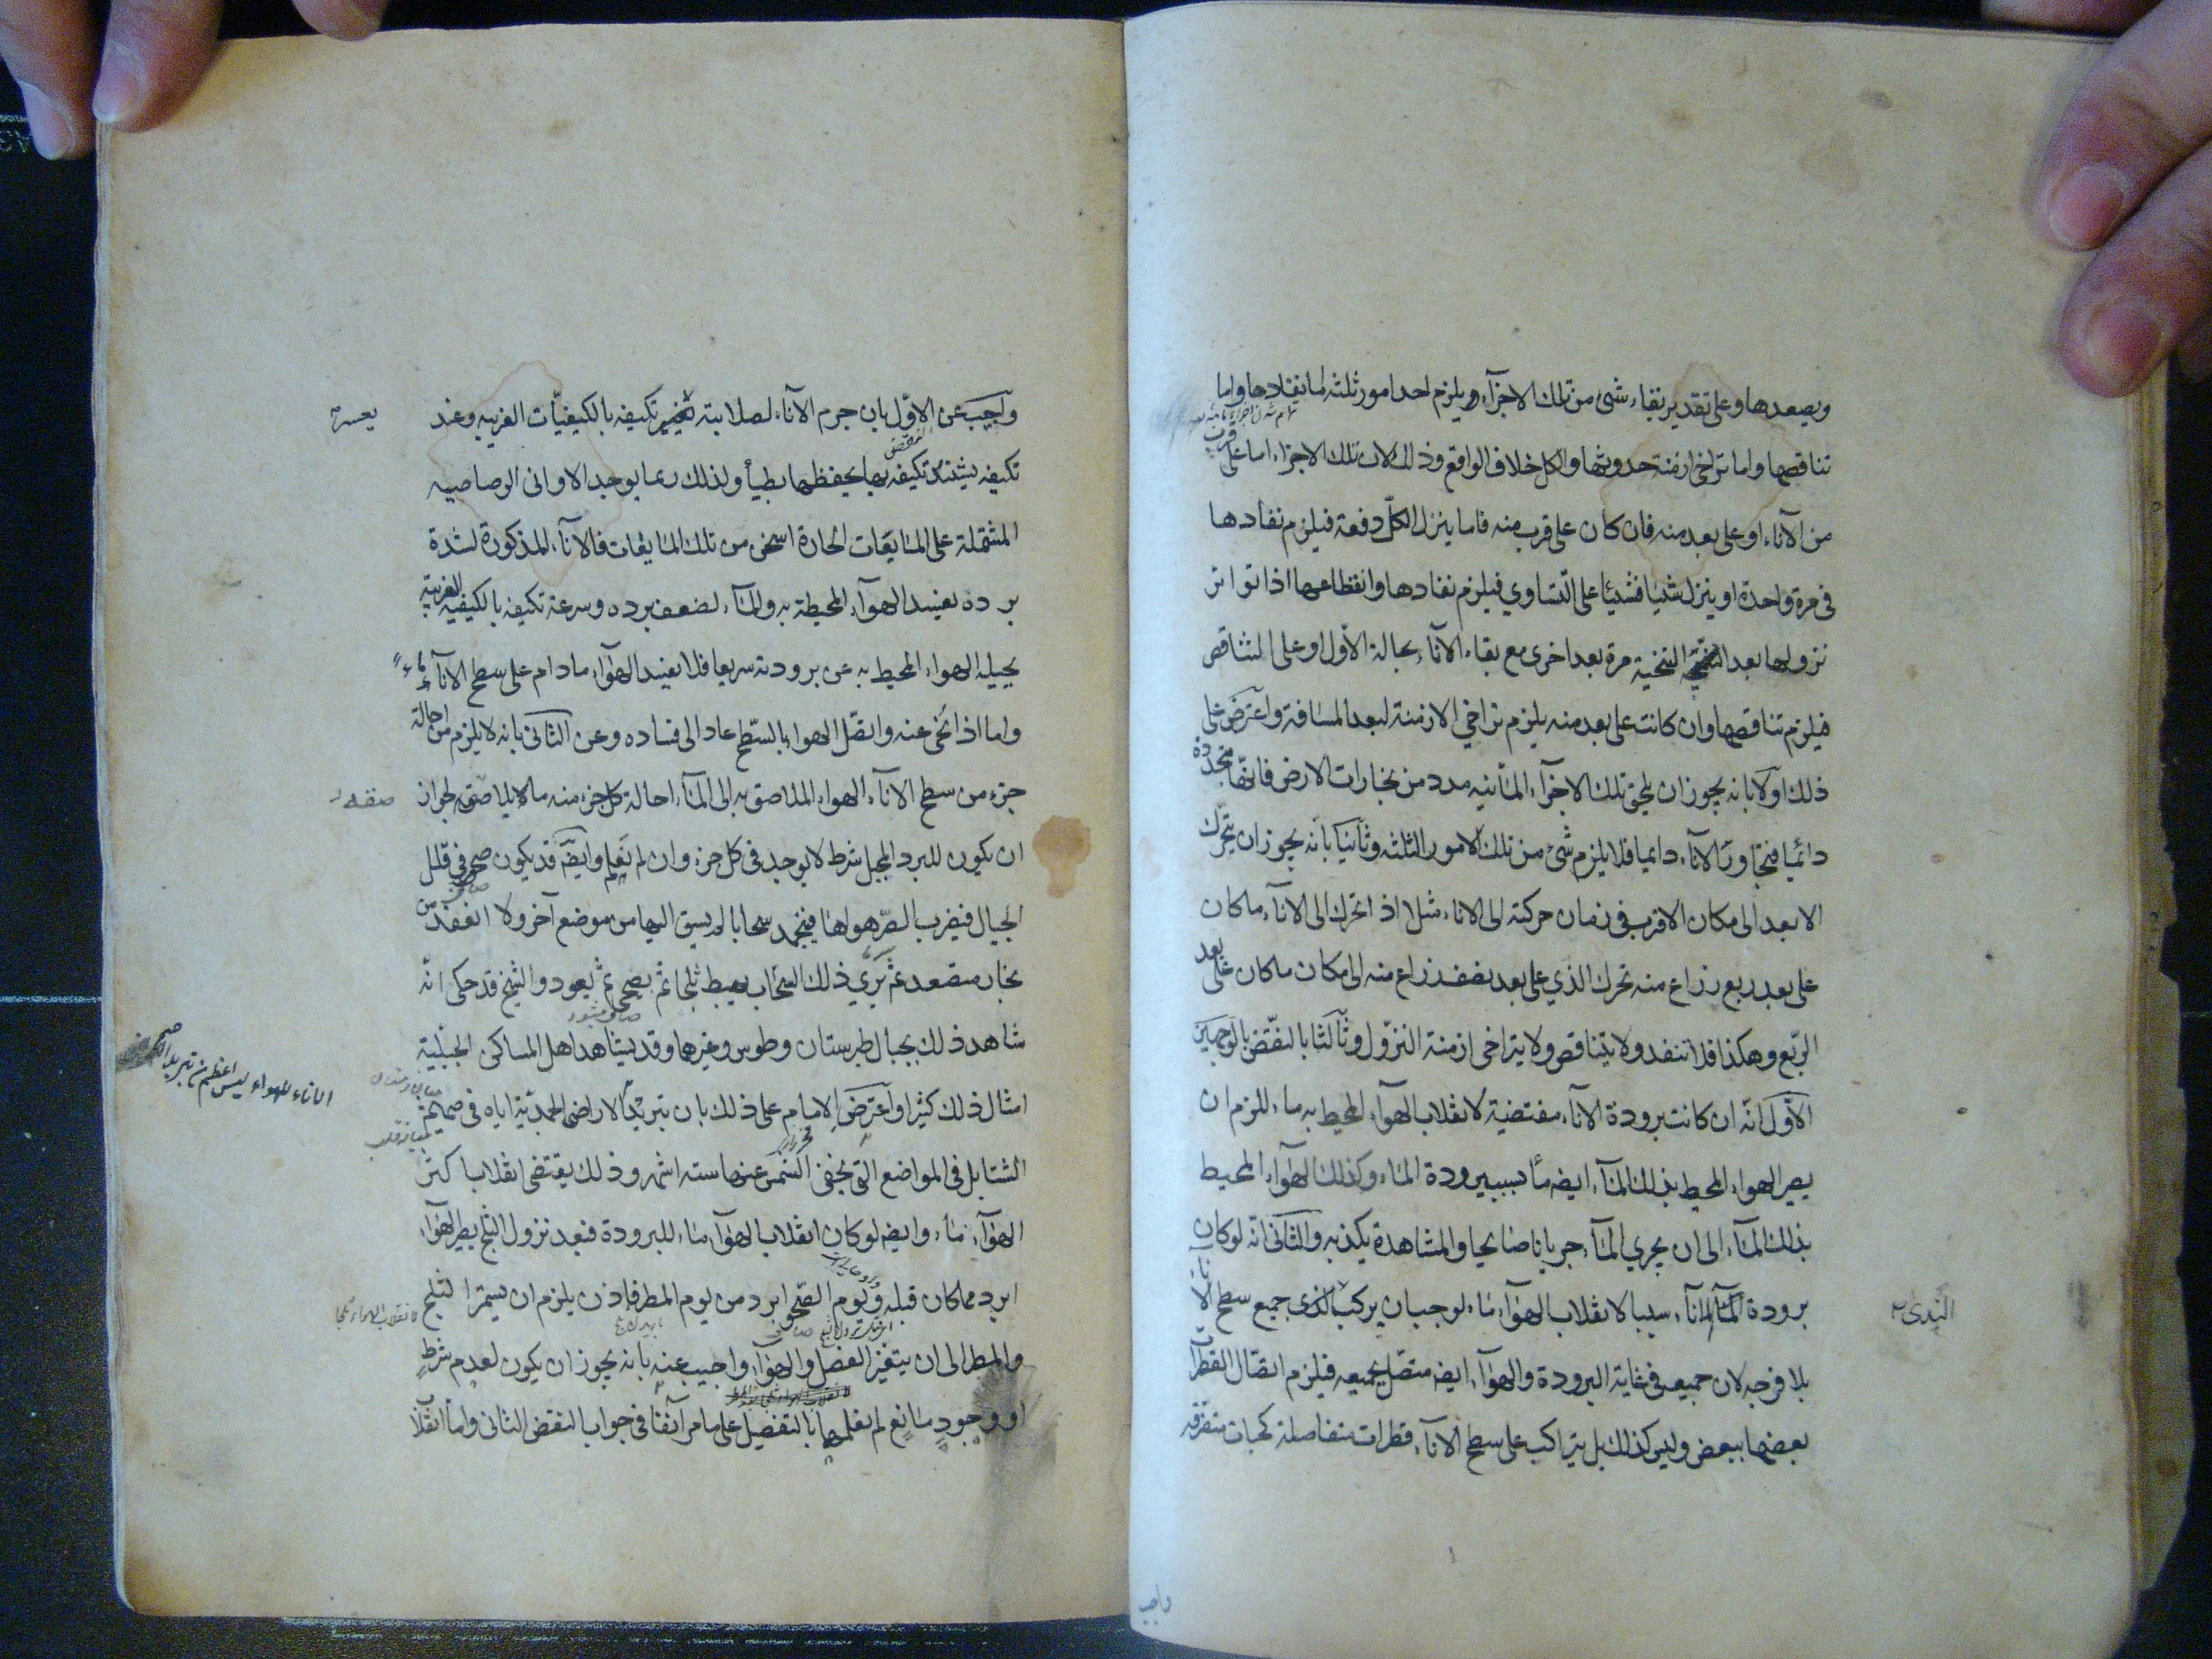 ويصعدها وعلى تقدير بقاء شئ من تلك الاجزآء ويلزم احد امور ثلثه اما نفادها واما
تناقصها واما تراخى ازمنة حدوثها والكل خلاف الواقع وذلك لان تلك الاجزاء اما على قرب
من الآناء او على بعد منه فان كان على قرب منه فاما ينزل الكلّ دفعة فيلزم نفادها
فى مرة واحدة او ينزل شيئا فشيئا على التّساوي فيلزم نفادها وانقطاعها اذا تواتر
نزولها بعد التنحية مرة بعد اخرى مع بقاء الآناء بحالة الأوّل او على التناقص
فيلزم تناقصها وان كانت على بعد منه يلزم تراخي الازمنة لبعد المسافة واعترض على
ذلك اوّلا بانه يجوز ان يلحق تلك الاجزآء المائيه مدد من بخارات الارض فانها متجددة
دائميا فتجاور الآناء دايما فلا يلزم شئ من تلك الامور الثلثه وثانيا بانه يجوز ان يتحرّك
الابعد الى مكان الاقرب فى زمان حركته الى الاناء مثلا اذا تحرك الى الآناء ماكان
على بعد ربع زراع منه تحرك الذي على بعد نصف زراع منه الى مكان ماكان على بعد
الرّبع وهكذا فلا تنفد ولا يتناقص ولا يتراخى ازمنة النزّول وثالثا بالنقّض بالوجهين
الأوّل انّه ان كانت برودة الآناء مقتضية لانقلاب الهوآء المحيط به ماء للزم ان
يصير الهواء المحيط بذلك المآء ايضه مأ بسبب برودة الماء وكذلك الهوآء المحيط
بذلك المآء الى ان يجري المآء جريانا صالحا والمشاهدة يكذبه والثانى انّه لو كان
برودة الآناء سببا لانقلاب الهوآء ماء لوجب ان يركب الندى جميع سطح الآناء
الندى
بلا فرجه لان جميعه فى غاية البرودة والهوآء ايضه متصل بجميعه فيلزم اتصّال القطرات
بعضها ببعض وليس كذلك بل يتراكب على سطح الآناء قطرات متفاصلة كحبات متفرّقه
واجيب
واجيب عن الاوّل بان جرم الآناء لصلابته تكيفه بالكيفيّات الغريبه وعند
يعسر
تكيفه يشتدّ تكيفه بها يحفظها بطيأ ولذلك ربما يوجد الاوانى الرصاصيه
المشتملة على المايعات الحارة اسخن من تلك المايعات فالآناء المذكورة لشدة
برده يفيد الهوآء المحيطة به والمآء لضعف برده وسرعة تكيفه بالكيفيه الغريبة
يحيله الهواء المحيط به عن برودته سريعا فلا يفيد الهوآء مادام على سطح الآناء ماء
واما اذا نحى عنه واتصّل الهواء بالسّطح عاد الى فساده وعن الثانى بانه لا يلزم من احالة
جزء من سطح الآناء الهواء الملاصق به الى المآء احالة كل جزء منه ما لا يلاصقه لجواز
ان يكون للبرد المحيل شرط لا يوجد فى كل جزء وان لم نعلم وايضه قد يكون صحو فى قلل
الجبال فيضرب الصّر هواها فينجمد سحابا لم يسق اليها من موضع آخر ولا انعقد من
بخار متصعد ثم يري ذلك السحاب يهبط ثلجا ثم يصحى ثم يعود والشيخ قد حكى انّه
شاهد ذلك بجبال طبرستان وطوس وغيرهما وقد يشاهد اهل المساكن الجبليّة
امثال ذلك كثيرا واعترض الامام على ذلك بان تبريد الاراضى الجمديّة اياه فى صميم
الاناء للهواء ليس اعظم من تبريد
الشتا بل فى المواضع التى يخفى الشمس عنها سته اشهر وذلك يقتضى انقلاب اكثر
الهوآء ماء وايضه لو كان انقلاب الهوآء ماء للبرودة فبعد نزول الثلج يصير الهوآء
ابرد مما كان قبله ويوم الصّحو ابرد من يوم المطر فاذن يلزم ان يستمر الثلج
والمطر الى ان يتغيّر الفصل والهوآء واجيب عنه بانه يجوز ان يكون لعدم شرط
او وجود مانع لم نعلمها بالتفصيل على ما مر آنفا فى جواب النقض الثانى واما انقلا